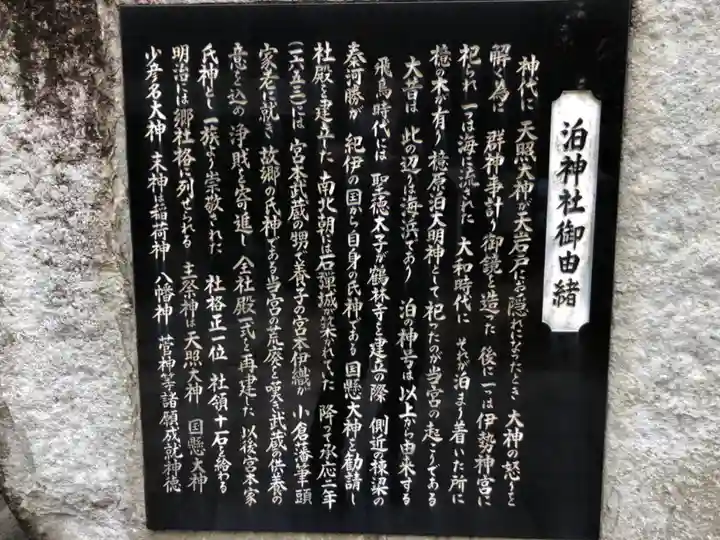 泊神社御由緒
神代に 天照大神が天岩戸にお隠れになったとき 大神の怒りを
解く為に 群神事計り御鏡を造った 後に一つは伊勢神宮に
祀られ 一つは海に流された 大和時代に それが泊まり着いた所に
檍の木が有り 檍原泊大明神として祀ったのが当宮の起こりである
大昔は 此の辺は海浜であり 泊の神号は以上から由来する
飛鳥時代には 聖徳太子が鶴林寺を建立の際 側近の棟梁の
秦河勝が 紀伊の国から自身の氏神である 国懸大神を勧請し
社殿を建立した 南北朝には石弾城が築かれていた 降って承応二年
(一六五三)には 宮本武蔵の甥で養子の宮本伊織が 小倉藩筆頭
家老に就き 故郷の氏神である当宮の荒廃を嘆き武蔵の供養の
意も込め 浄財を寄進し 全社殿一式を再建した 以後宮本家
氏神として 一族より崇敬された 社格正一位 社領十石を給わる
明治には郷社格に列せられる 主祭神は天照大神 国懸大神
少彦名大神 末神は稲荷神 八幡神 菅神等諸願成就神徳